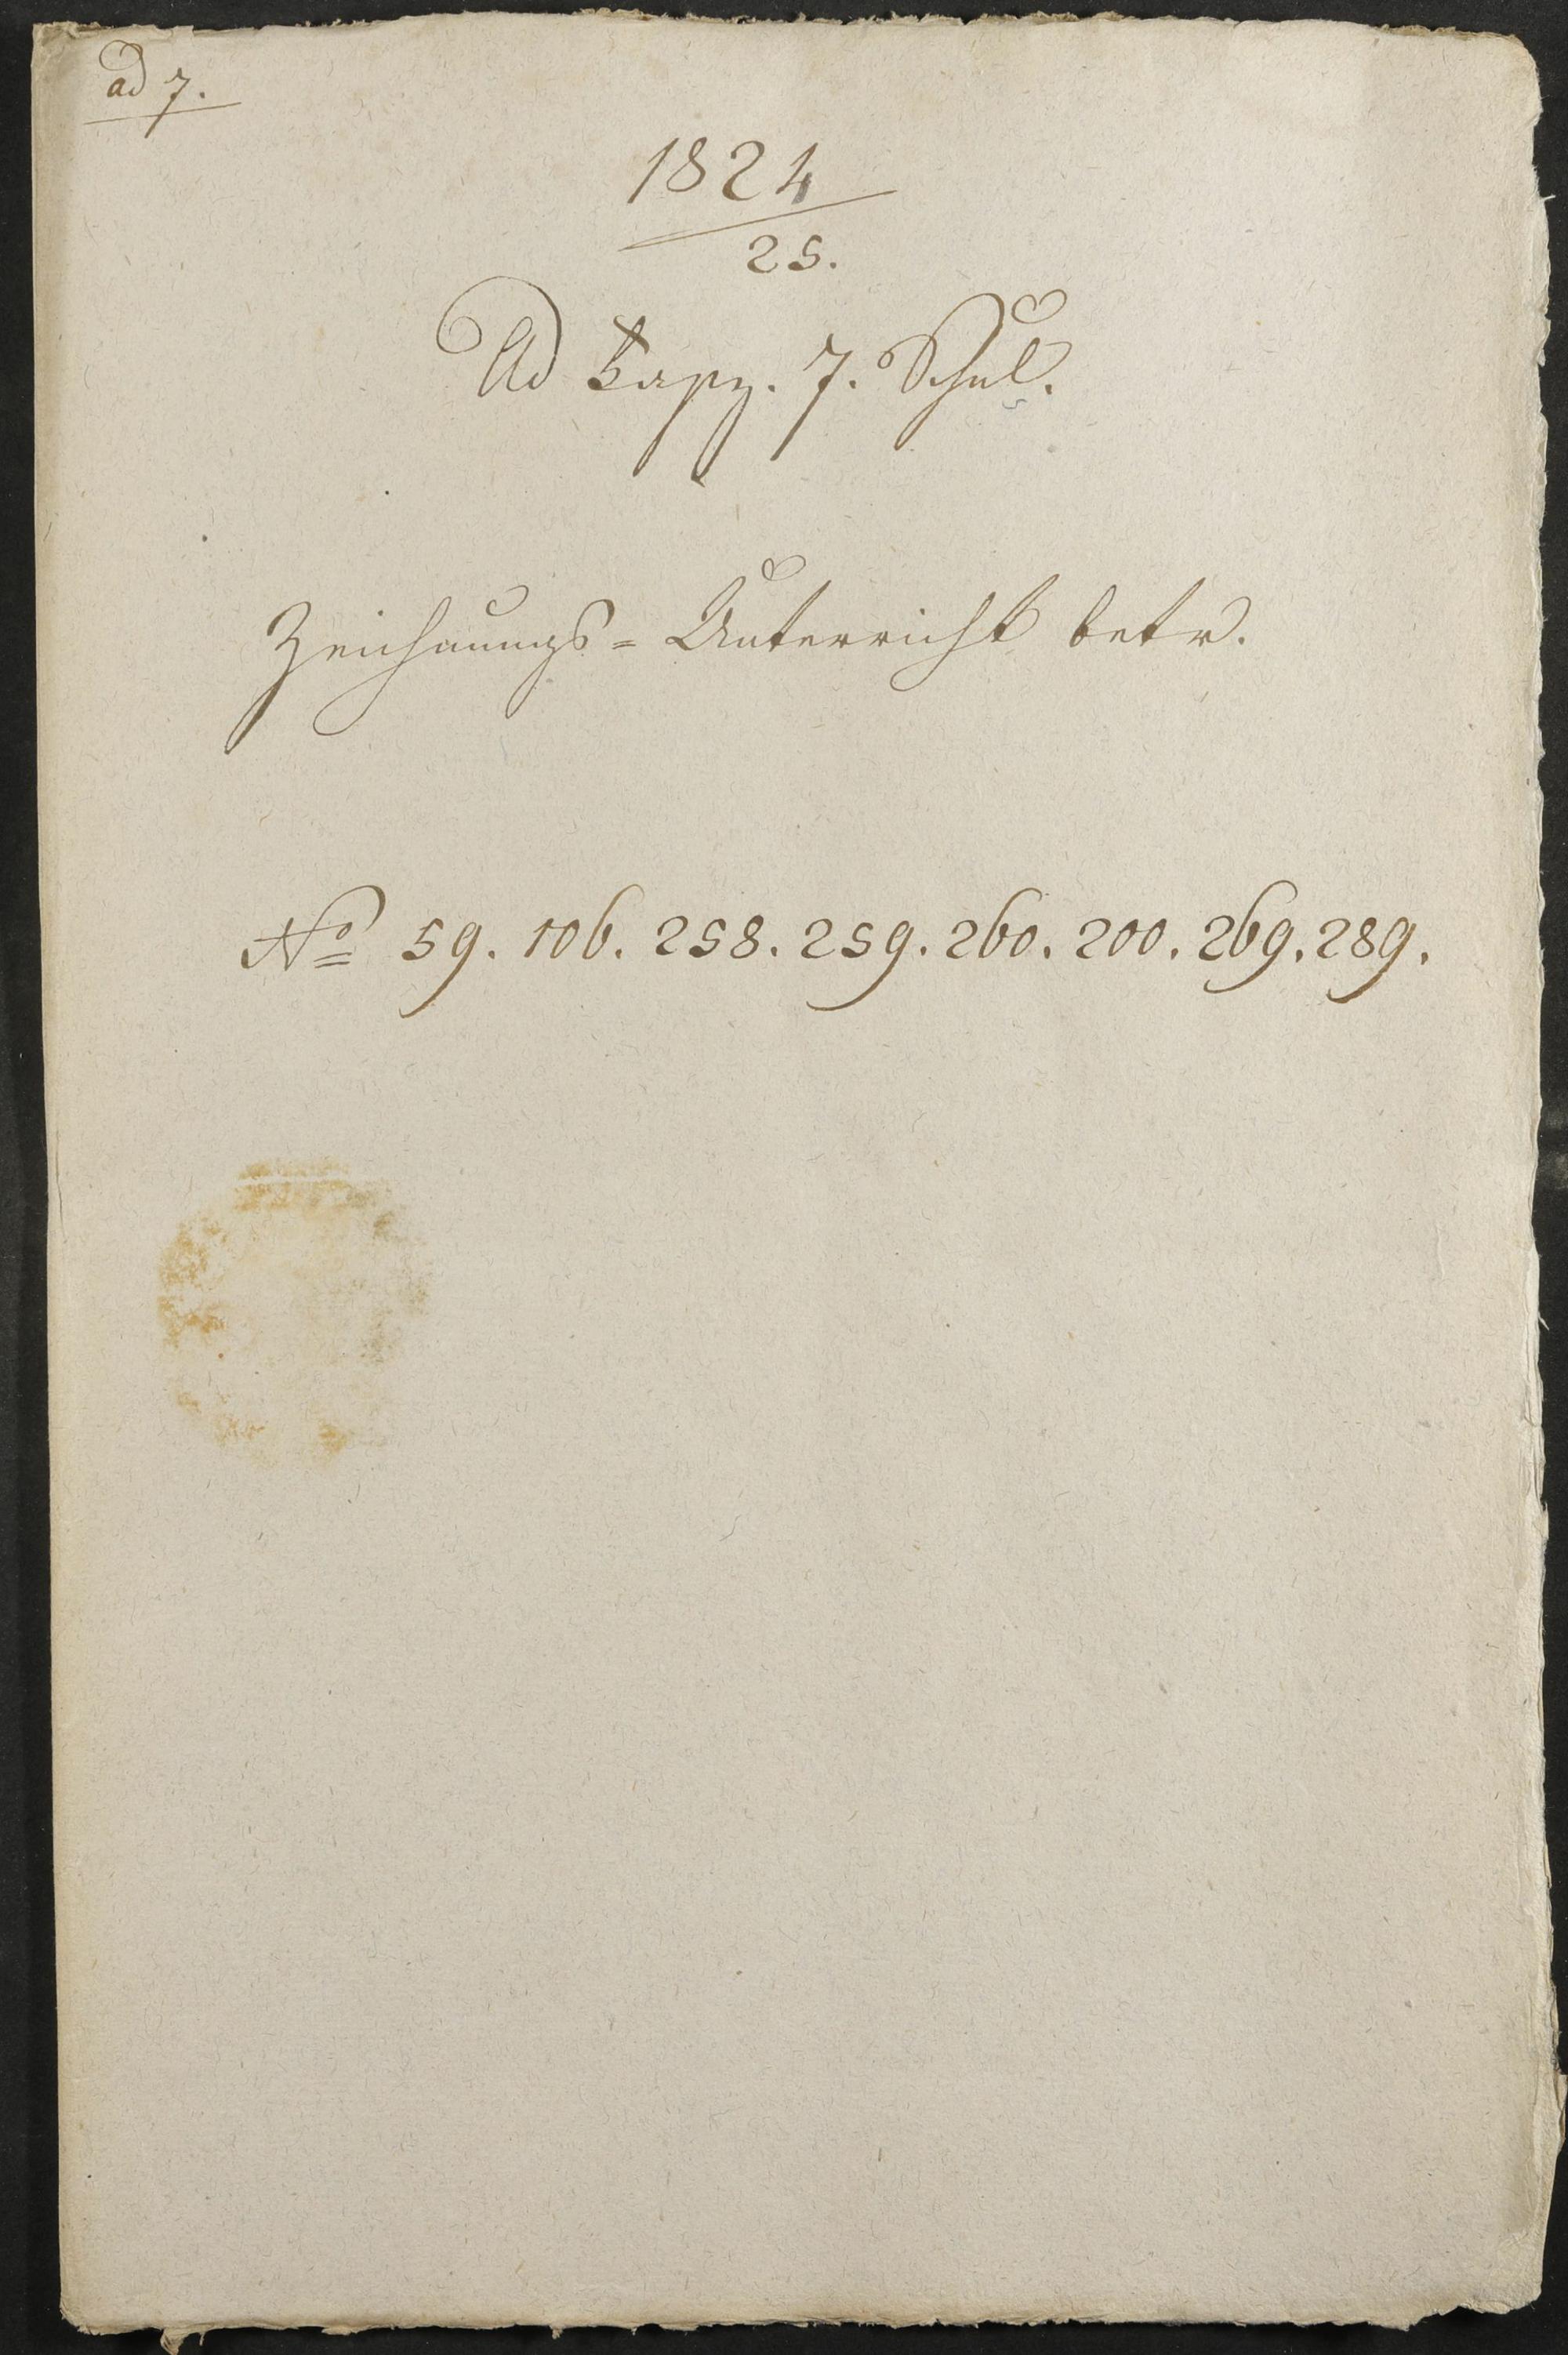 ad 7.
1824
25.
Ad Kapz. 7. Schul.
Zeichnungs= Unterricht betr.
No 59. 106. 258. 259. 260. 200. 269. 289.